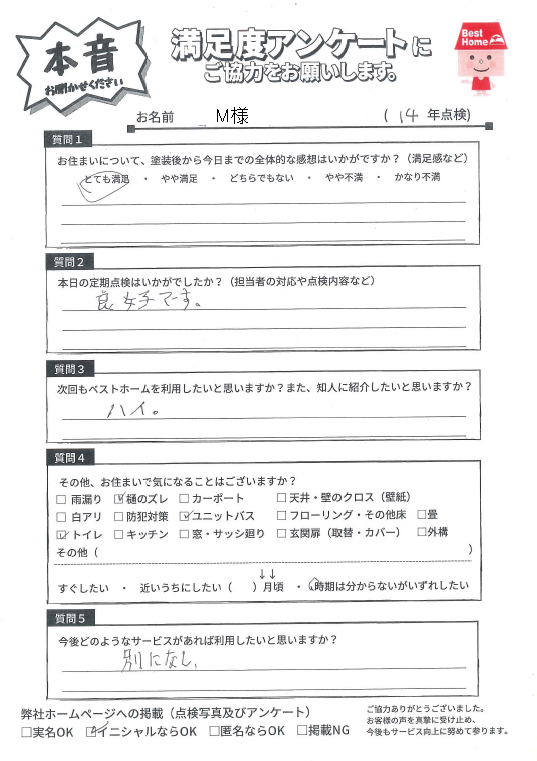 本音
お聞かせください
満足度アンケートに
ご協力をお願いします。
Best
Home
お名前 M様 ( 14 年点検)
質問1
お住まいについて、塗装後から今日までの全体的な感想はいかがですか？（満足感など）
とても満足 ・ やや満足 ・ どちらでもない ・ やや不満 ・ かなり不満
質問2
本日の定期点検はいかがでしたか？（担当者の対応や点検内容など）
良好でーす。
質問3
次回もベストホームを利用したいと思いますか？また、知人に紹介したいと思いますか？
ハイ。
質問4
その他、お住まいで気になることはございますか？
□ 雨漏り ☑ 樋のズレ □ カーポート □ 天井・壁のクロス（壁紙）
□ 白アリ □ 防犯対策 ☑ ユニットバス □ フローリング・その他床 □畳
☑ トイレ □ キッチン □ 窓・サッシ廻り □ 玄関扉（取替・カバー） □外構
その他（ ）
↓↓
すぐしたい ・ 近いうちにしたい（ ）月頃 ・ 時期は分からないがいずれしたい
質問5
今後どのようなサービスがあれば利用したいと思いますか？
別になし、
弊社ホームページへの掲載（点検写真及びアンケート）
□実名OK ☑イニシャルならOK □匿名ならOK □掲載NG
ご協力ありがとうございました。
お客様の声を真摯に受け止め、
今後もサービス向上に努めて参ります。